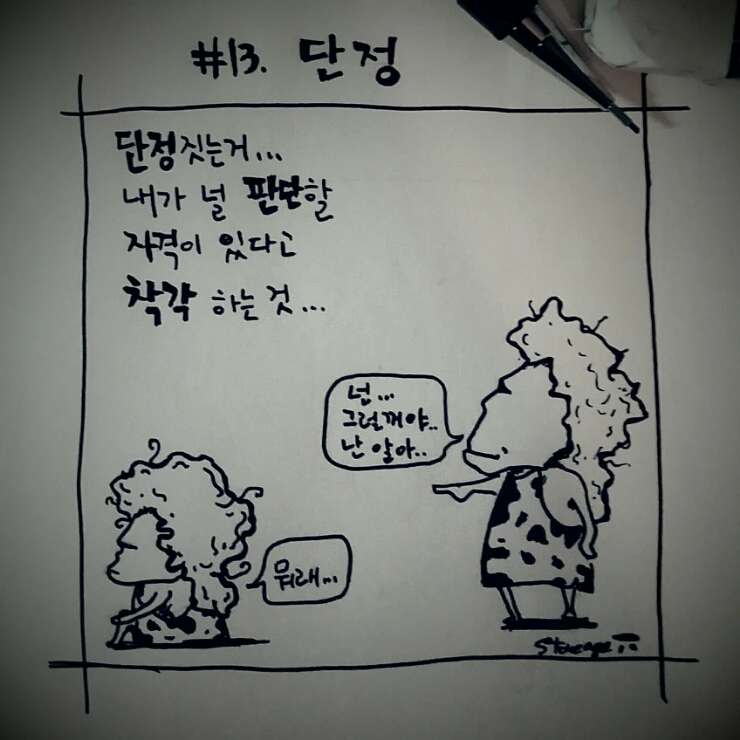 #13. 단정
단정짓는거...
내가 널 판단할
자격이 있다고
착각 하는 것...
넌...
그럴꺼야..
난 알아..
뭐래...